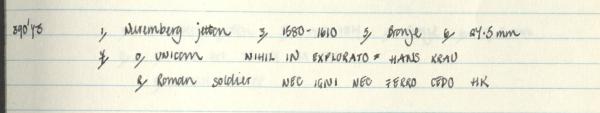 390'73 1, Nuremberg jetton 3, 1580-1610 5, Bronze 6, 24.5mm
7, O, unicorn NIHIL IN EXPLORATO = HANS KRAU
R, Roman soldier NEC IGNI NEC FERRO CEDO HK